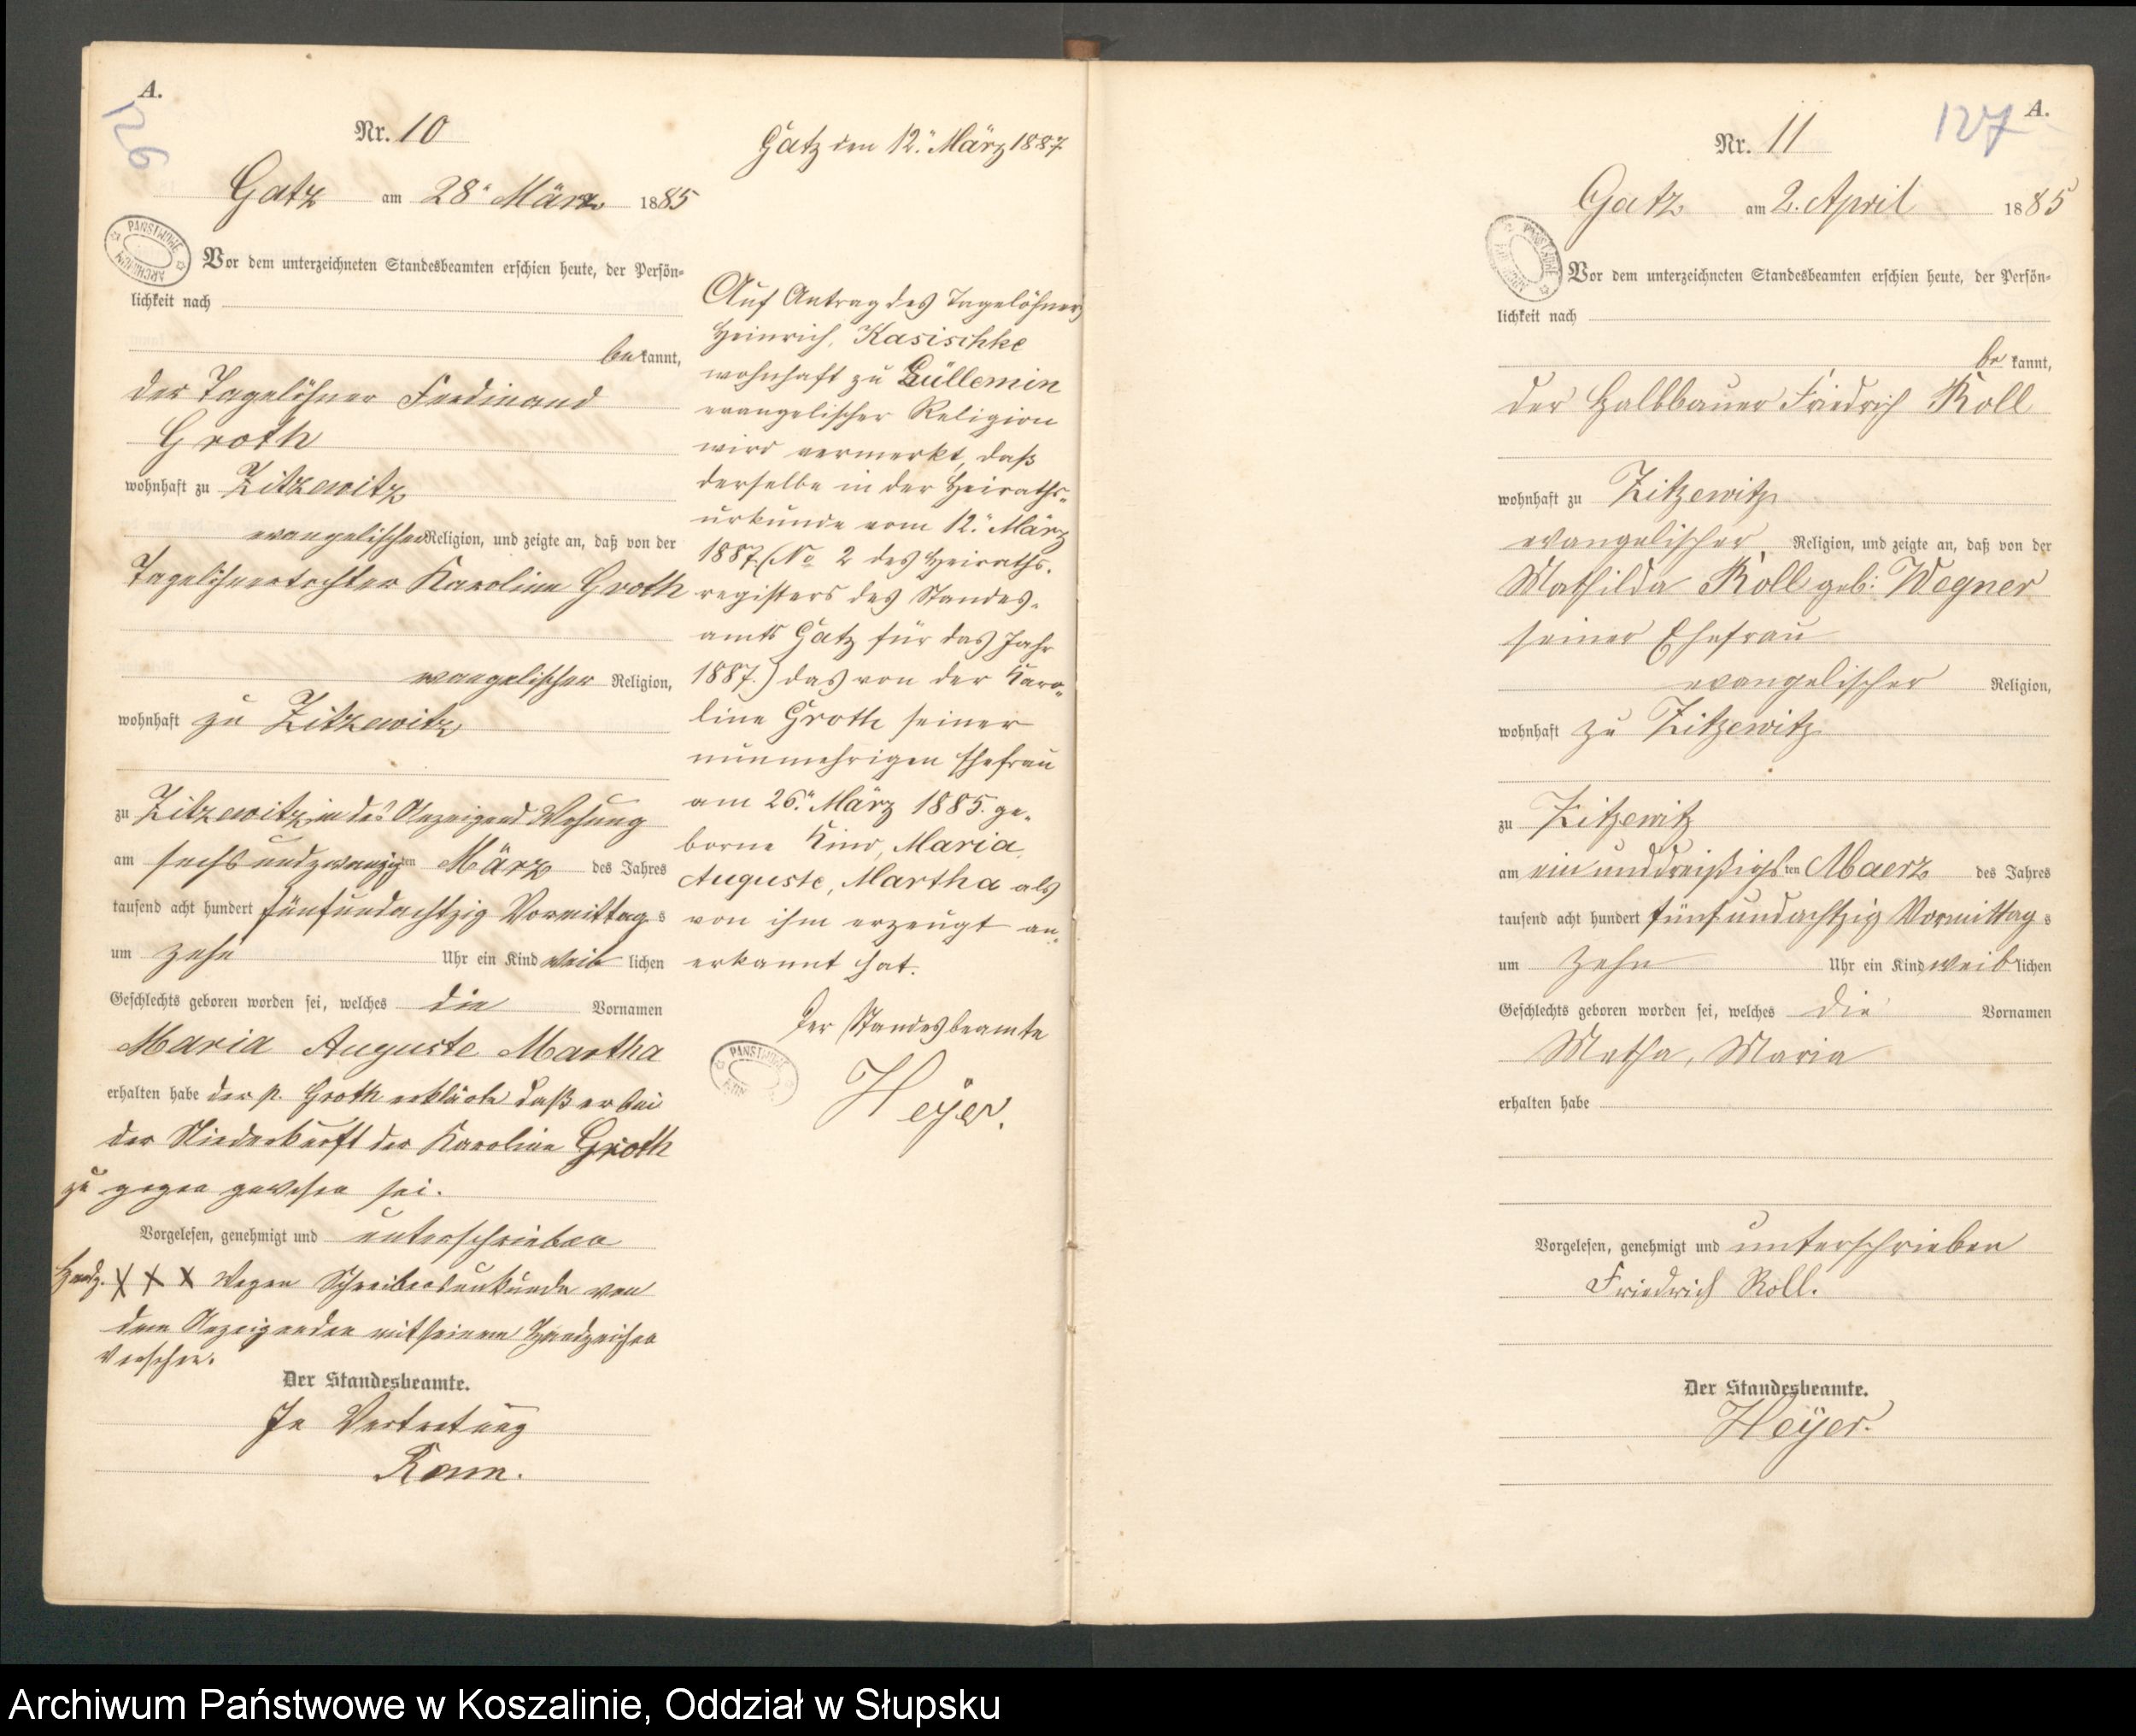 A.
126
Nr. 10
Gatz am 28" März 1885
PAŃSTWOWE ARCHIWUM
Vor dem unterzeichneten Standesbeamten erschien heute, der Persön-
lichkeit nach
be kannt,
der Tagelöhner Ferdinand
Groth
wohnhaft zu Zitzewitz
evangelischer Religion, und zeigte an, daß von der
Tagelöhnertochter Karoline Groth
evangelischer Religion,
wohnhaft zu Zitzewitz
zu Zitzewitz in des Anzeigend Wohung
am sechsundzwanzigten März des Jahres
tausend acht hundert fünfundachtzig Vormittag s
um zehn Uhr ein Kind weib lichen
Geschlechts geboren worden sei, welches die Vornamen
Maria Auguste Martha
erhalten habe der p. Groth erklärte daß er bei
der Niederkunft der Karoline Groth
zu gegen gewesen sei.
Vorgelesen, genehmigt und unterschrieben
Handz. X X X Wegen Schreibensunkunde von
dem Anzeigenden mit seinem Handzeichen
versehen.
Der Standesbeamte.
In Vertretung
Gatz den 12." März 1887
Auf Antrag des Tagelöhners
Heinrich, Kasischke
wohnhaft zu Güllemin
evangelischer Religion
wird vermerkt, daß
derselbe in der Heiraths-
urkunde vom 12." März
1887. (No 2 des Heiraths-
registers des Standes-
amts Gatz für das Jahr
1887.) das von der Karo-
line Groth seiner
nunmehrigen Ehefrau
am 26." März 1885. ge-
borne Kind, Maria,
Auguste, Martha als
von ihm erzeugt an-
erkannt hat.
Der Standesbeamte
PAŃSTWOWE
Heyer.
A.
127
Nr. 11
Gatz am 2. April 1885
Vor dem unterzeichneten Standesbeamten erschien heute, der Persön-
lichkeit nach
be kannt,
der Halbbauer Friedrich Koll
wohnhaft zu Zitzewitz
evangelischer Religion, und zeigte an, daß von der
Mathilda Koll geb: Wegner
seiner Ehefrau
evangelischer Religion,
wohnhaft zu Zitzewitz
zu Zitzewitz
am einunddreißigsten Maerz des Jahres
tausend acht hundert fünfundachtzig Vormittag s
um zehn Uhr ein Kind weib lichen
Geschlechts geboren worden sei, welches die Vornamen
Matha, Maria
erhalten habe
Vorgelesen, genehmigt und unterschrieben
Friedrich Koll.
Der Standesbeamte.
Heyer.
Archiwum Państwowe w Koszalinie, Oddział w Słupsku